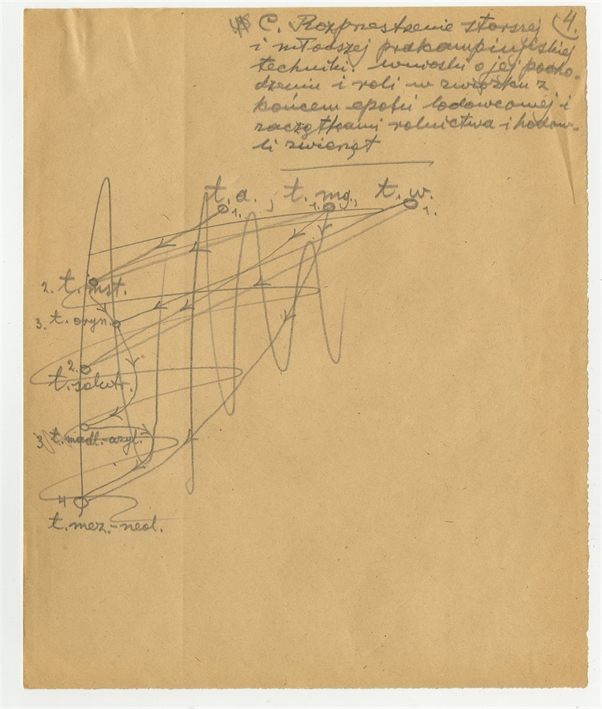 C. Rozprzestrzenie starszej 4.
i młodszej prakampinijskiej
techniki. Wnioski o jej pocho-
dzeniu i roli w związku z
końcem epoki lodowcowej i
zaczątkami rolnictwa i hodow-
li zwierząt
t. a., t. mg., t. w.
1. 1. 1.
2. t. mst.
3. t. oryn.
2.
t. solutr.
3. t. magd.-azyl.
4
t. mez.-neol.